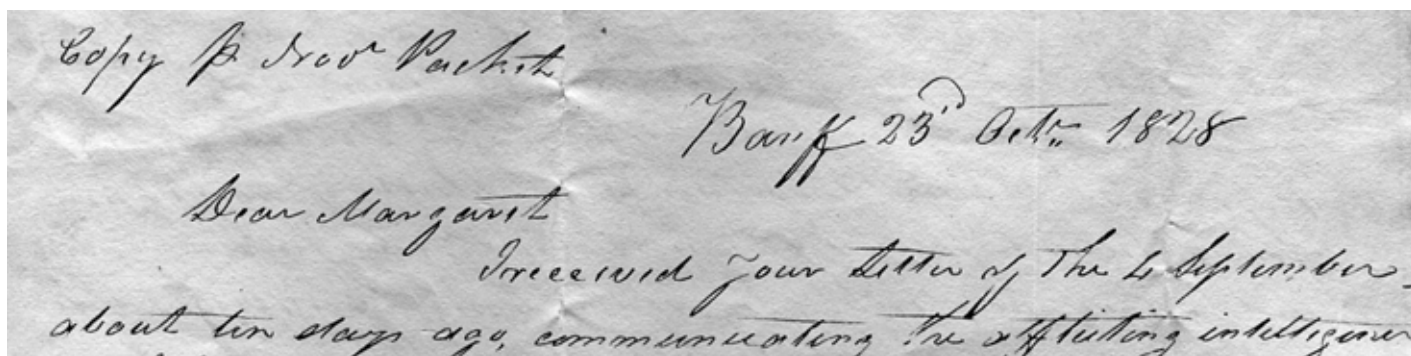 Copy P Novr Packet
Banff 23d Octr. 1828
Dear Margaret
I received your Letter of the 4 September
about ten days ago, communicating the afflicting intelligence